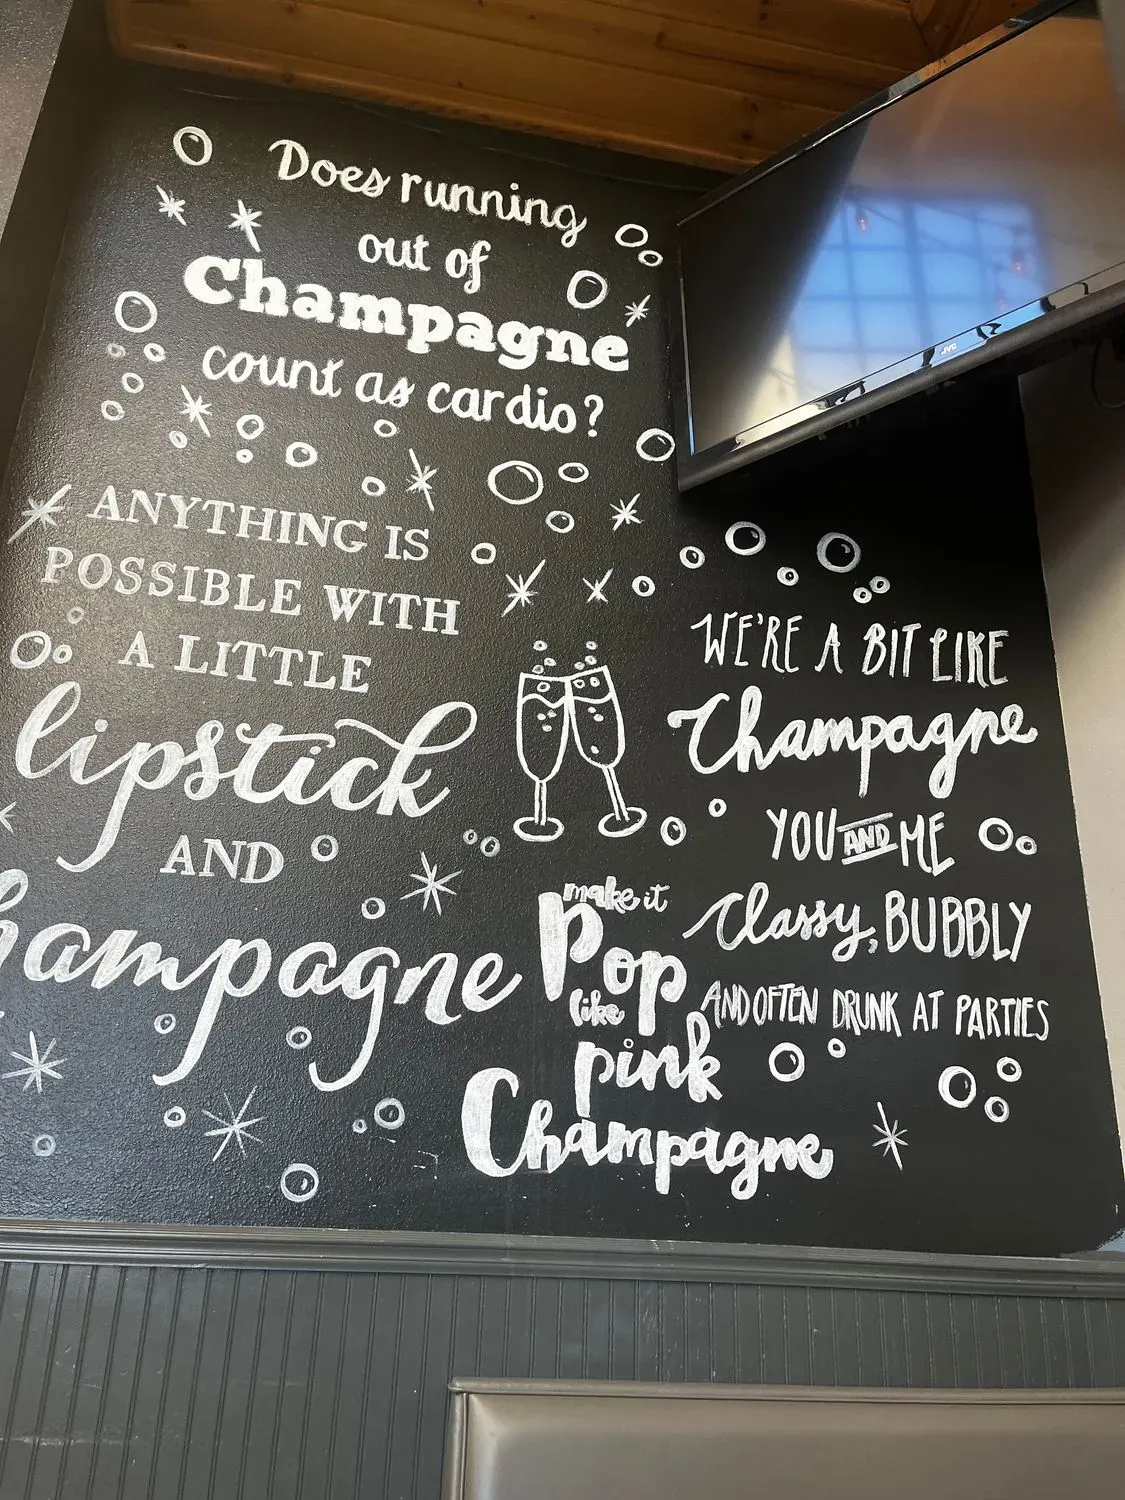 Does running
out of
Champagne
count as cardio?
ANYTHING IS
POSSIBLE WITH
A LITTLE
lipstick
AND
hampagne
WE'RE A BIT LIKE
Champagne
YOU AND ME
Classy, BUBBLY
AND OFTEN DRUNK AT PARTIES
make it
Pop
like
pink
Champagne
JVC